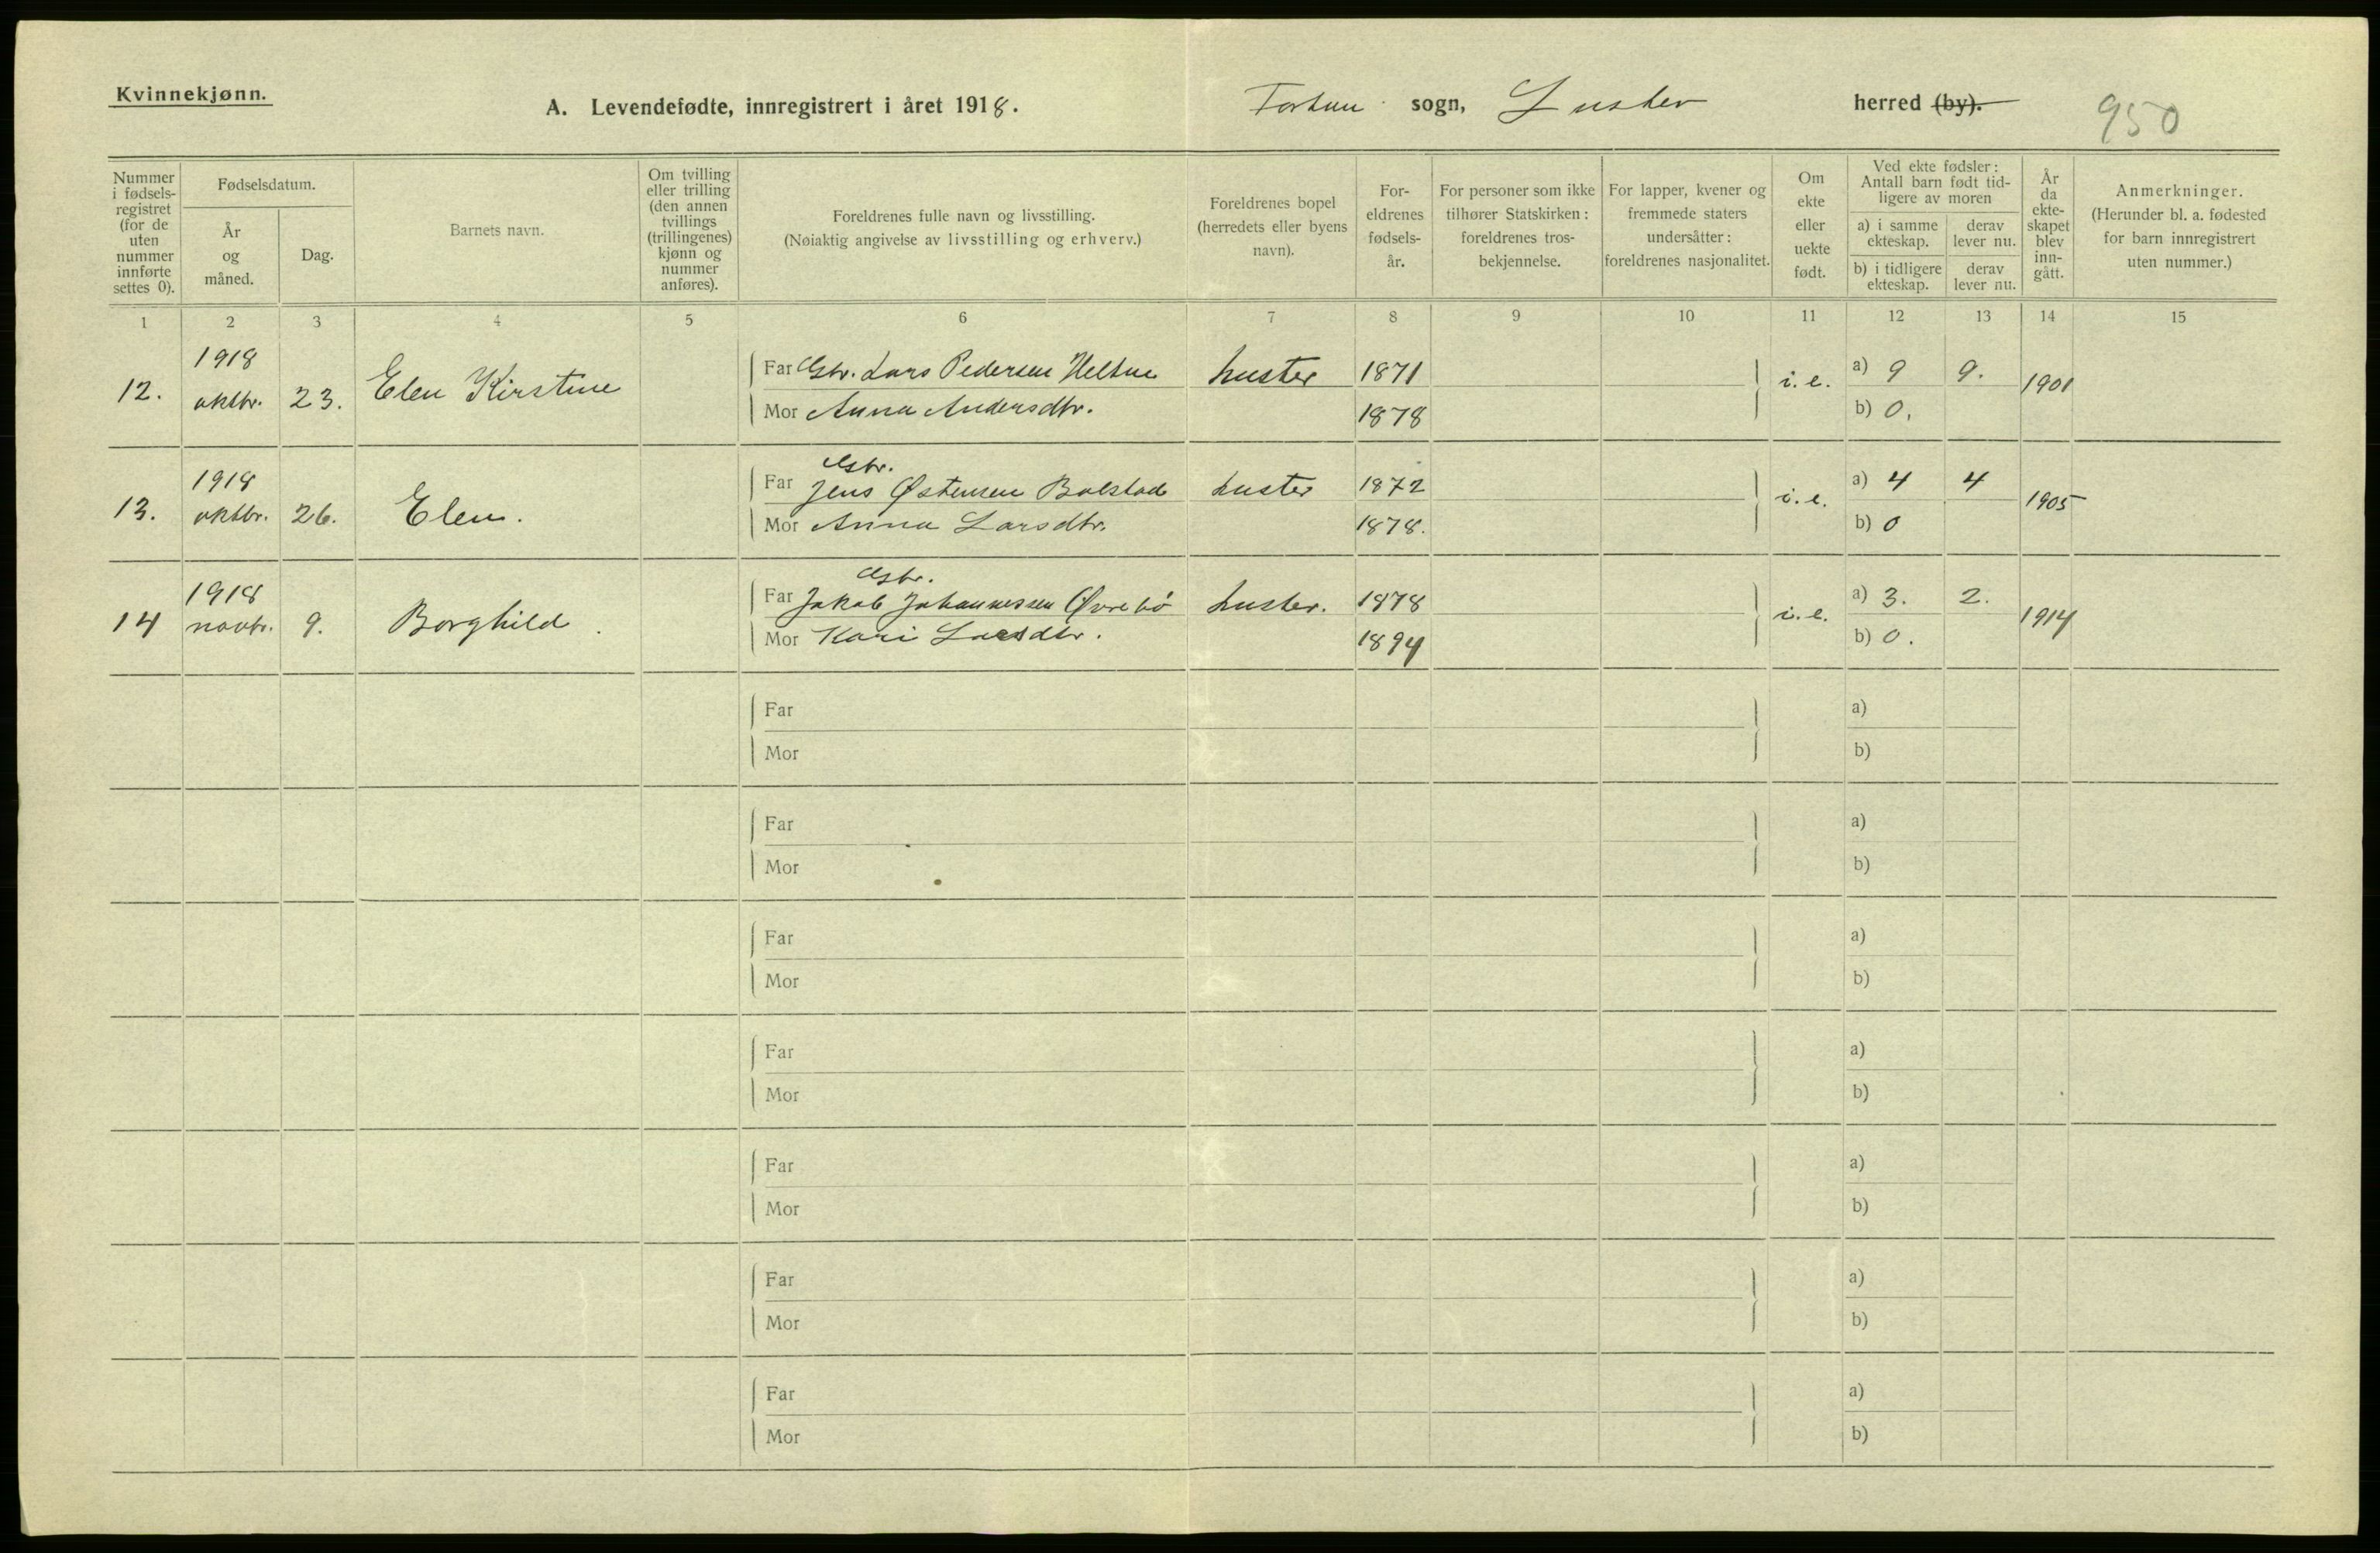 Kvinnekjønn.
A. Levendefødte, innregistrert i året 1918. Fortun sogn, Luster herred (by). 950
Nummer i fødsels-registret (for de uten nummer innførte settes 0).
Fødselsdatum.
År og måned.
Dag.
Barnets navn.
Om tvilling eller trilling (den annen tvillings (trillingenes) kjønn og nummer anføres).
Foreldrenes fulle navn og livsstilling.
(Nøiaktig angivelse av livsstilling og erhverv.)
Foreldrenes bopel (herredets eller byens navn).
For-eldrenes fødsels-år.
For personer som ikke tilhører Statskirken: foreldrenes tros-bekjennelse.
For lapper, kvener og fremmede staters undersåtter: foreldrenes nasjonalitet.
Om ekte eller uekte født.
Ved ekte fødsler: Antall barn født tid-ligere av moren
a) i samme ekteskap. derav lever nu.
b) i tidligere ekteskap. derav lever nu.
År da ekte-skapet blev inn-gått.
Anmerkninger.
(Herunder bl. a. fødested for barn innregistrert uten nummer.)
1 2 3 4 5 6 7 8 9 10 11 12 13 14 15
12. 1918 oktbr. 23. Elen Kirstine
Far Gbr. Lars Pedersen Heltne Luster 1871 i. e. a) 9 9. 1901
Mor Anna Andersdtr. 1878 b) 0.
13. 1918 oktbr. 26. Elen.
Gbr.
Far Jens Østensen Bolstad Luster 1872 i. e. a) 4 4 1905
Mor Anna Larsdtr. 1878. b) 0
14 1918 novbr. 9. Borghild.
Gbr.
Far Jakob Johannessen Øvrebø Luster. 1878 i. e. a) 3. 2. 1914
Mor Kari Larsdtr. 1894 b) 0.
Far a)
Mor b)
Far a)
Mor b)
Far a)
Mor b)
Far a)
Mor b)
Far a)
Mor b)
Far a)
Mor b)
Far a)
Mor b)